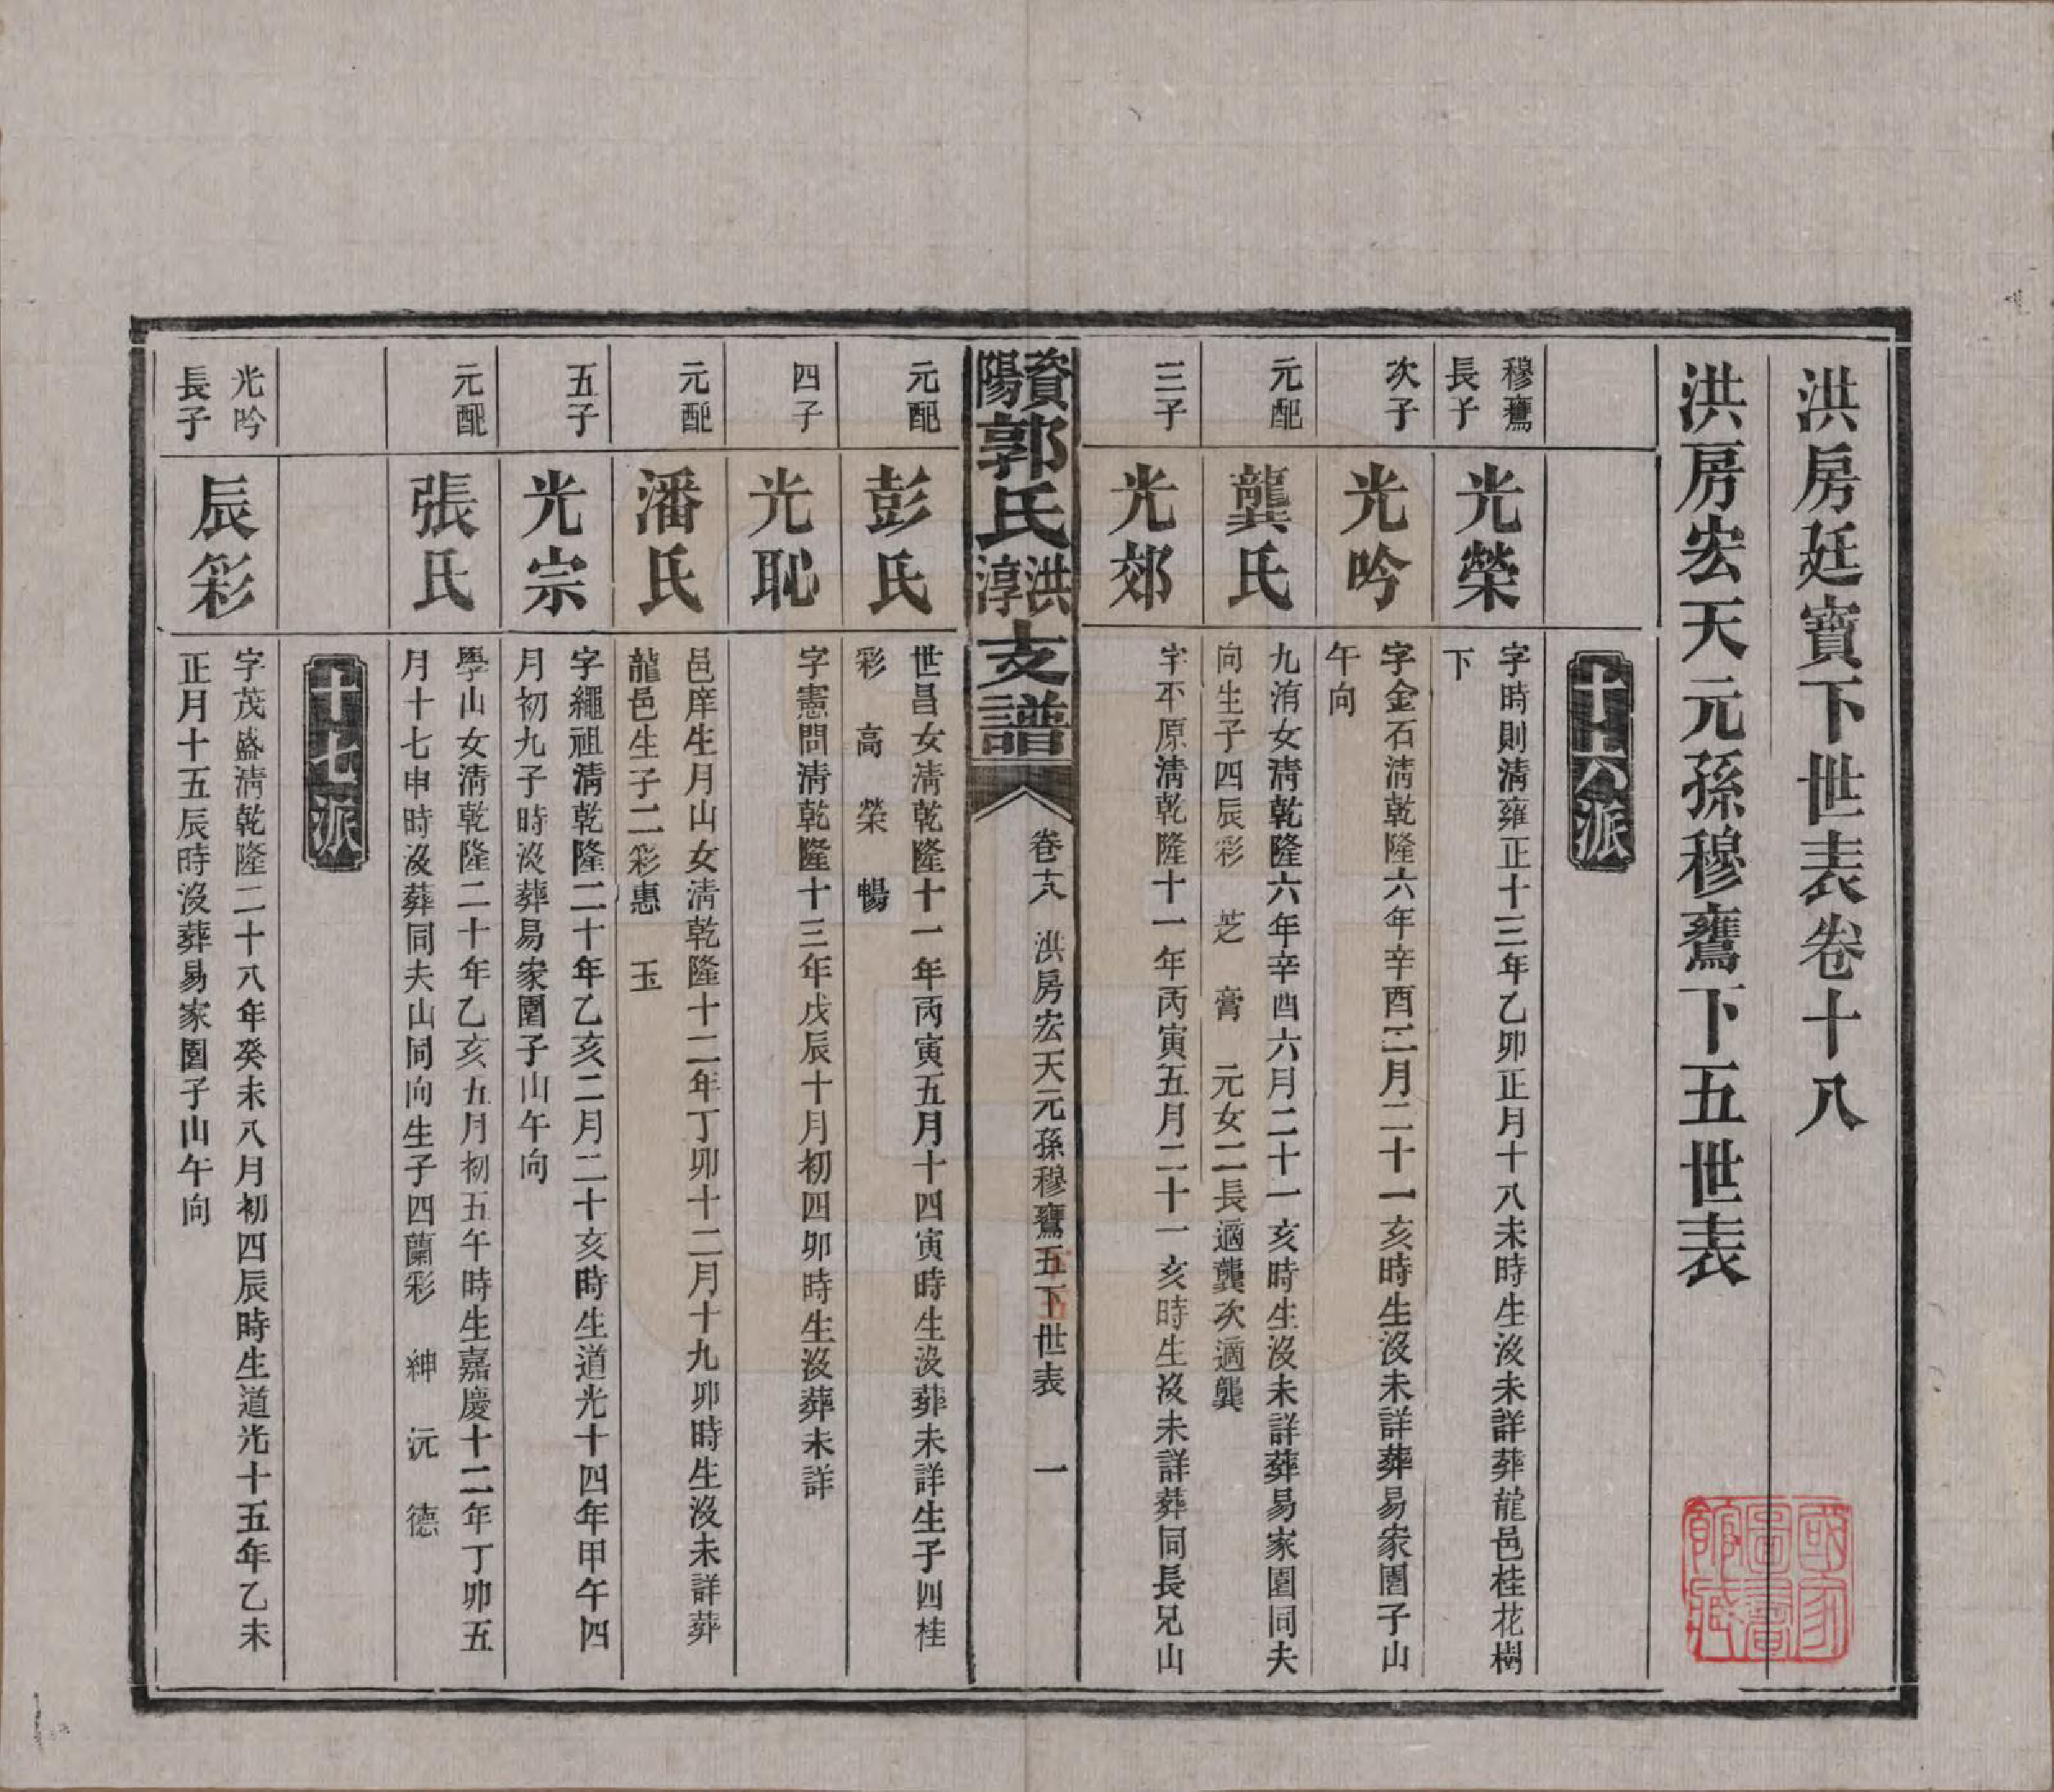 洪房廷寶下世表卷十八
洪房宏天元孫穆鶱下五世表
十六派
穆鶱
長子
光榮
字時則淸雍正十三年乙卯正月十八未時生沒未詳葬龍邑桂花樹
下
次子
光吟
字金石淸乾隆六年辛酉三月二十一亥時生沒未詳葬易家園子山
午向
元配
龔氏
九洧女淸乾隆六年辛酉六月二十一亥時生沒未詳葬易家園同夫
向生子四辰彩 芝 膏 元女二長適龔次適龔
三子
光郊
字平原淸乾隆十一年丙寅五月二十一亥時生沒未詳葬同長兄山
資陽郭氏洪淳支譜
卷十八 洪房宏天元孫穆鶱五下世表 一
元配
彭氏
世昌女淸乾隆十一年丙寅五月十四寅時生沒葬未詳生子四桂
彩 高 榮 暢
四子
光恥
字憲問淸乾隆十三年戊辰十月初四卯時生沒葬未詳
元配
潘氏
邑庠生月山女淸乾隆十二年丁卯十二月十九卯時生沒未詳葬
龍邑生子二彩惠 玉
五子
光宗
字繩祖淸乾隆二十年乙亥二月二十亥時生道光十四年甲午四
月初九子時沒葬易家園子山午向
元配
張氏
學山女淸乾隆二十年乙亥五月初五午時生嘉慶十二年丁卯五
月十七申時沒葬同夫山同向生子四蘭彩 紳 沅 德
十七派
光吟
長子
辰彩
字茂盛淸乾隆二十八年癸未八月初四辰時生道光十五年乙未
正月十五辰時沒葬易家園子山午向
國家圖書館藏